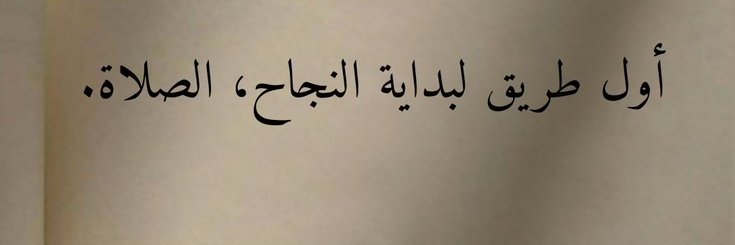 أول طريق لبداية النجاح، الصلاة.